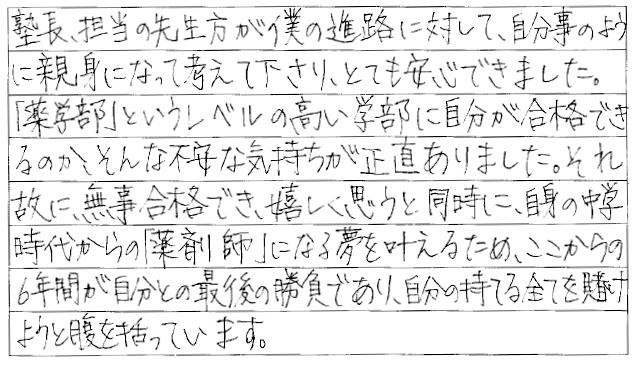 塾長、担当の先生方が僕の進路に対して、自分事のよう
に親身になって考えて下さり、とても安心できました。
「薬学部」というレベルの高い学部に自分が合格でき
るのか、そんな不安な気持ちが正直ありました。それ
故に、無事合格でき、嬉しく思うと同時に、自身の中学
時代からの「薬剤師」になる夢を叶えるため、ここからの
6年間が自分との最後の勝負であり、自分の持てる全てを賭け
ようと腹を括っています。